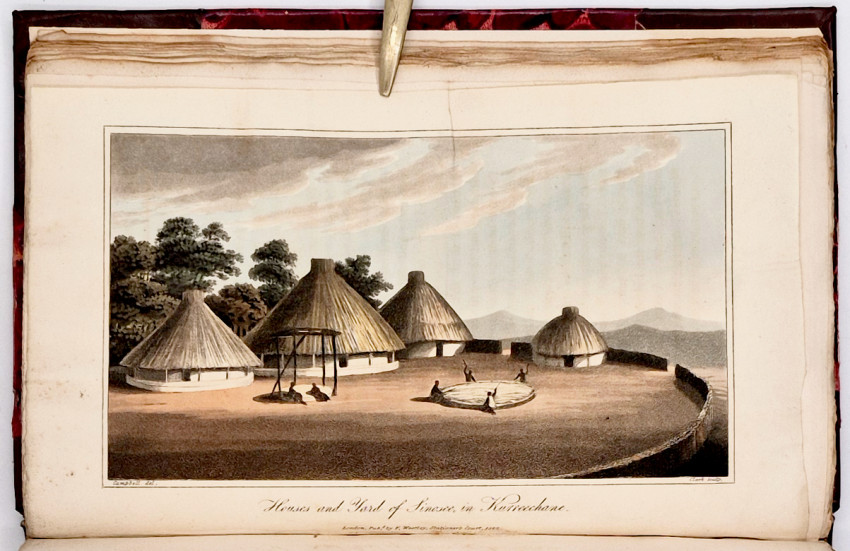 Campbell del.
Clark sculp.
Houses and Yard of Sinosee, in Kurreechane.
London, Pub. by F. Westley, Stationers Court, 1822.